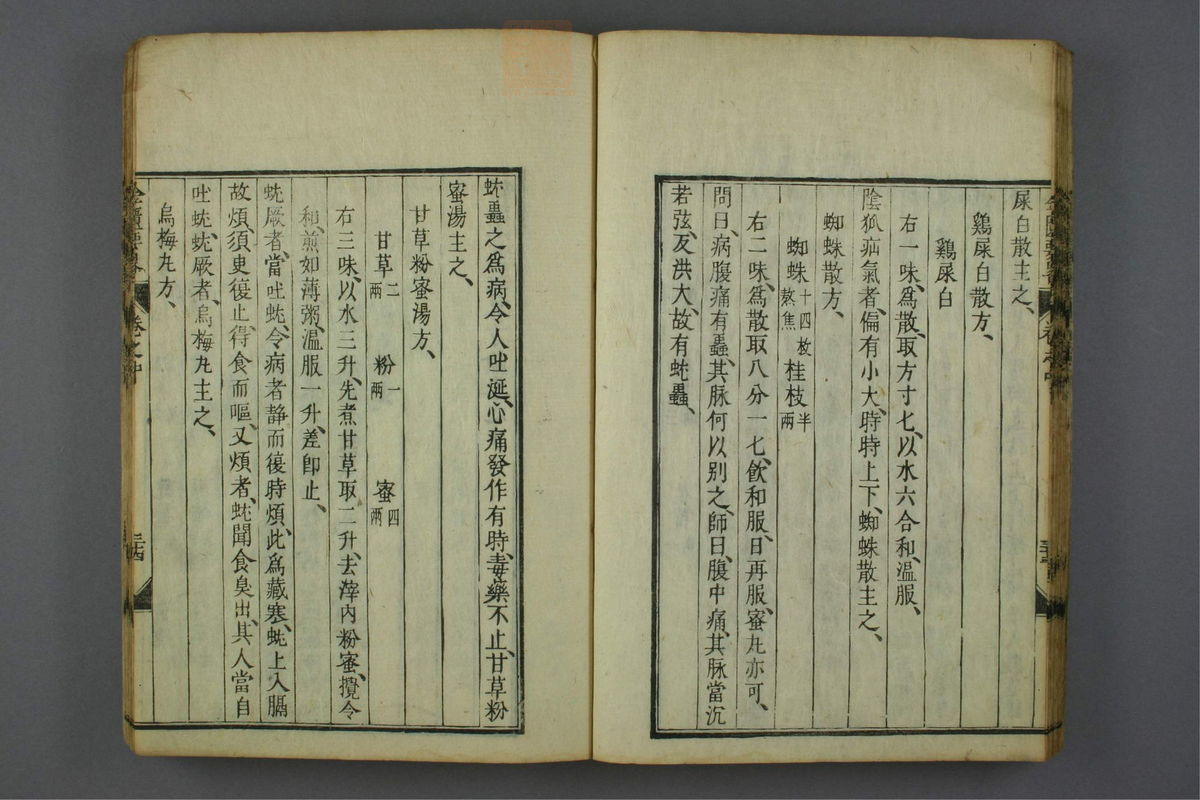 屎白散主之、
鷄屎白散方、
鷄屎白
右一味、爲散、取方寸匕、以水六合和、溫服、
陰狐疝氣者、偏有小大、時時上下、蜘蛛散主之、
蜘蛛散方、
蜘蛛十四枚熬焦 桂枝半兩
右二味、爲散、取八分一匕、飮和服、日再服、蜜丸亦可、
問曰、病腹痛有蟲、其脉何以別之、師曰、腹中痛、其脉當沉
若弦、反洪大、故有蚘蟲、
蚘蟲之爲病、令人吐涎、心痛發作有時、毒藥不止、甘草粉
蜜湯主之、
甘草粉蜜湯方、
甘草二兩 粉一兩 蜜四兩
右三味、以水三升、先煮甘草取二升、去滓、内粉蜜、攪令
和、煎如薄粥、溫服一升、差卽止、
蚘厥者、當吐蚘、令病者静而復時煩、此爲藏寒、蚘上入膈
故煩、須臾復止、得食而嘔、又煩者、蚘聞食臭出、其人當自
吐蚘、蚘厥者、烏梅丸主之、
烏梅丸方、
金匱要略 卷之中 三十四